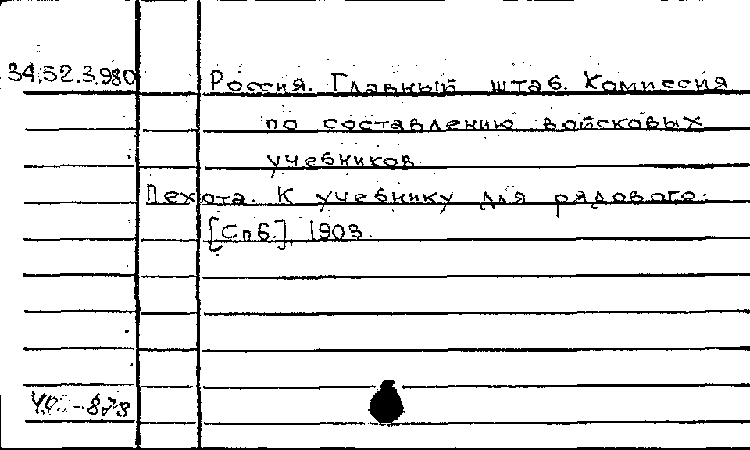 34.52.3.980 Россия. Главный штаб. Комиссия
по составлению войсковых
учебников
Пехота. К учебнику для рядового.
[Спб], 1903.